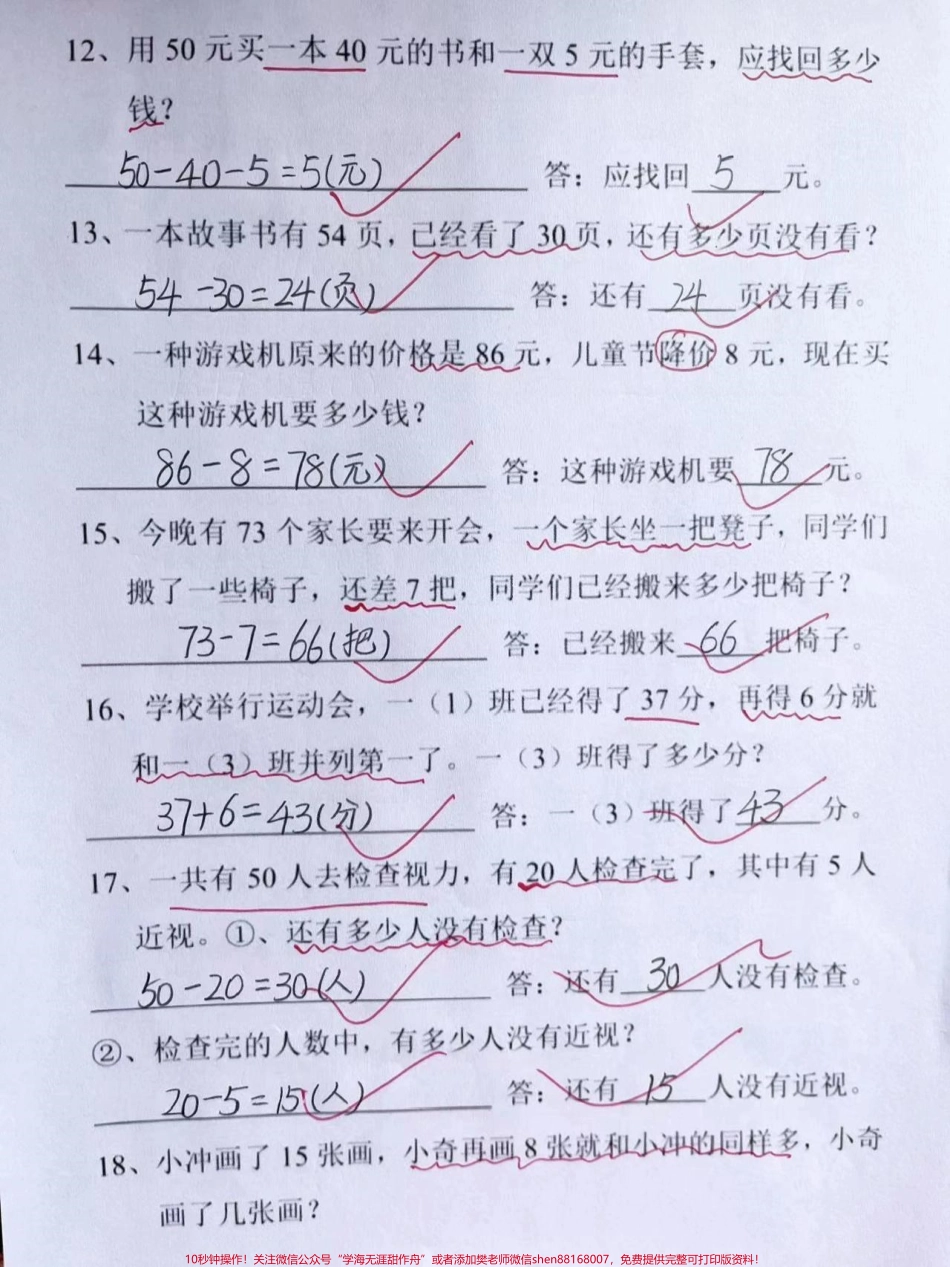 12、用 50 元买一本 40 元的书和一双 5 元的手套，应找回多少
钱？
50-40-5=5(元) 答：应找回 5 元。
13、一本故事书有 54 页，已经看了 30 页，还有多少页没有看？
54-30=24(页) 答：还有 24 页没有看。
14、一种游戏机原来的价格是 86 元，儿童节降价 8 元，现在买
这种游戏机要多少钱？
86-8=78(元) 答：这种游戏机要 78 元。
15、今晚有 73 个家长要来开会，一个家长坐一把凳子，同学们
搬了一些椅子，还差 7 把，同学们已经搬来多少把椅子？
73-7=66(把) 答：已经搬来 66 把椅子。
16、学校举行运动会，一（1）班已经得了 37 分，再得 6 分就
和一（3）班并列第一了。一（3）班得了多少分？
37+6=43(分) 答：一（3）班得了 43 分。
17、一共有 50 人去检查视力，有 20 人检查完了，其中有 5 人
近视。①、还有多少人没有检查？
50-20=30(人) 答：还有 30 人没有检查。
②、检查完的人数中，有多少人没有近视？
20-5=15(人) 答：还有 15 人没有近视。
18、小冲画了 15 张画，小奇再画 8 张就和小冲的同样多，小奇
画了几张画？
10秒钟操作！关注微信公众号“学海无涯甜作舟”或者添加樊老师微信shen88168007，免费提供完整可打印版资料！